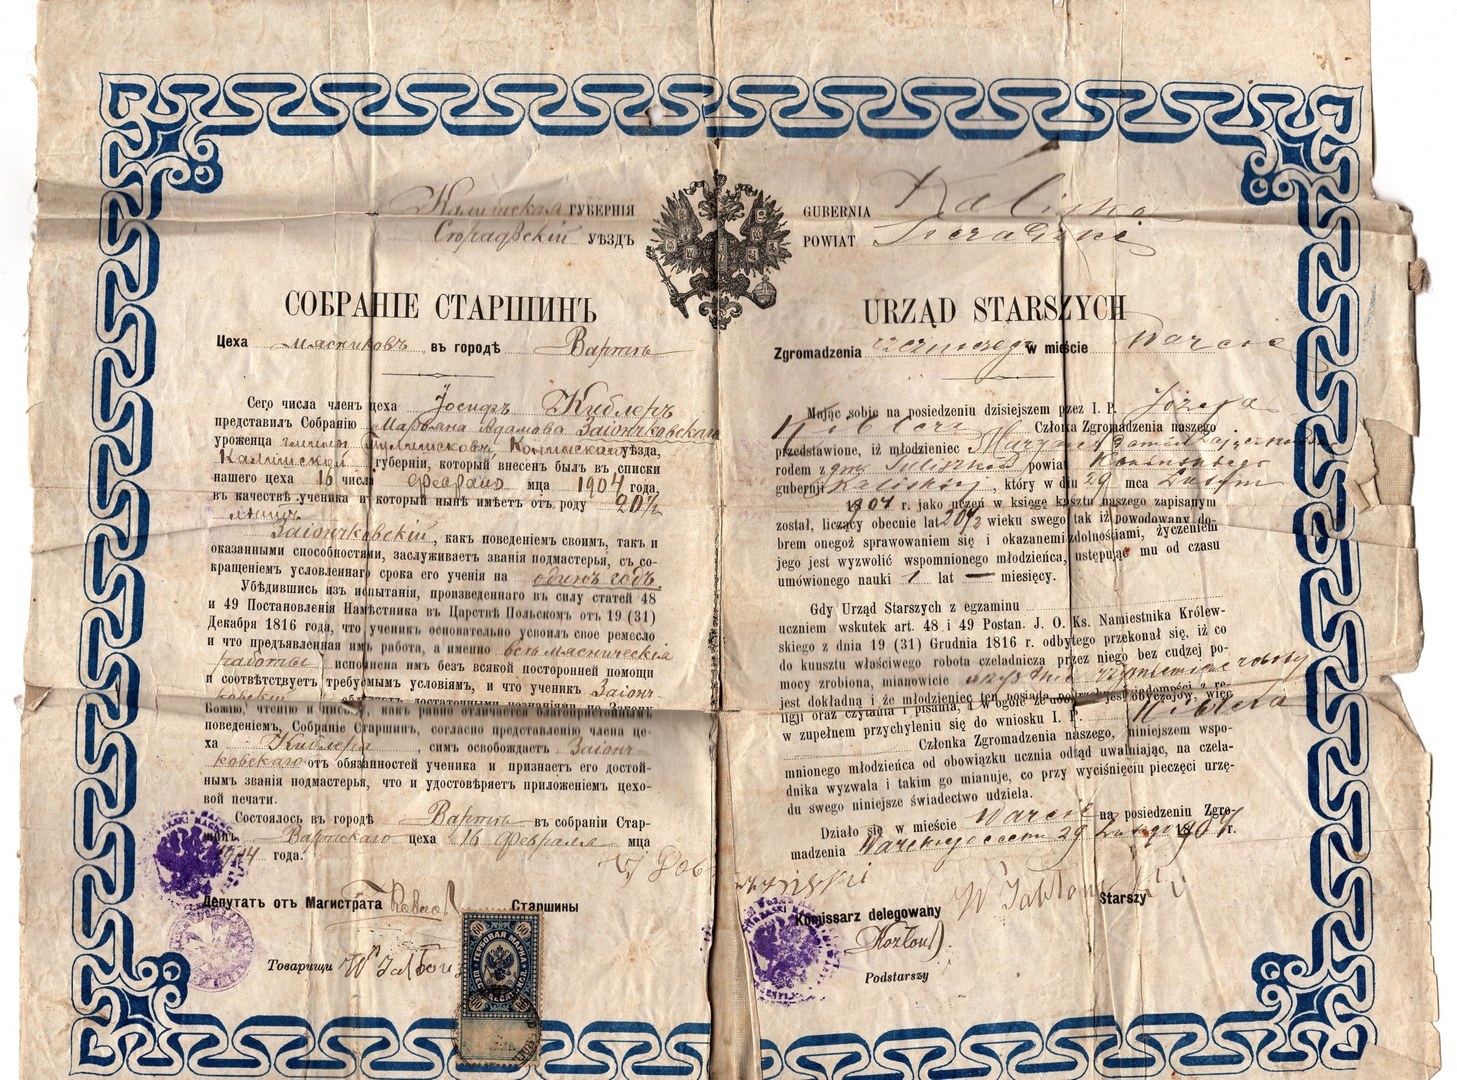 Калишская ГУБЕРНІЯ
Сѣрадзскій УѢЗДЪ
СОБРАНІЕ СТАРШИНЪ
Цеха мясниковъ въ городѣ Вартѣ
Сего числа членъ цеха Іосифъ Киблеръ
представилъ Собранію Марьяна Адамова Заіончковскаго
уроженца гмины Конинскаго уѣзда,
Калишской губерніи, который внесенъ былъ въ списки
нашего цеха 16 числа февраля мца 1904 года,
въ качествѣ ученика и который нынѣ имѣетъ отъ роду 20½
Заіончковскій, какъ поведеніемъ своимъ, такъ и
оказанными способностями, заслуживаетъ званія подмастерья, съ со-
кращеніемъ условленнаго срока его ученія на одинъ годъ.
Убѣдившись изъ испытанія, произведеннаго въ силу статей 48
и 49 Постановленія Намѣстника въ Царствѣ Польскомъ отъ 19 (31)
Декабря 1816 года, что ученикъ основательно усвоилъ свое ремесло
и что предъявленная имъ работа, а именно всѣ мясническія
работы исполнена имъ безъ всякой посторонней помощи
и соотвѣтствуетъ требуемымъ условіямъ, и что ученикъ Заіонч-
ковскій достаточными познаніями по Закону
Божію, чтенію и письму, какъ равно отличается благонравнымъ
поведеніемъ, Собраніе Старшинъ, согласно представленію члена це-
ха Киблера, симъ освобождаетъ Заіонч
ковскаго отъ обязанностей ученика и признаетъ его достой-
нымъ званія подмастерья, что и удостовѣряетъ приложеніемъ цехо-
вой печати.
Состоялось въ городѣ Вартѣ въ собраніи Стар-
шинъ Вартскаго цеха 16 февраля мца
1904 года.
Депутатъ отъ Магистрата
Старшины
Товарищи
ГЕРБОВАЯ МАРКА
60
GUBERNIA Kaliska
POWIAT Sieradzki
URZĄD STARSZYCH
Zgromadzenia rzeźniczego w mieście Warcie
Mając sobie na posiedzeniu dzisiejszem pzez I. P. Józefa
Kiblera Członka Zgromadzenia naszego
przedstawione, iż młodzieniec Maryan
rodem z gm. Tuliszków powiat Konińskiego
gubernji Kaliskiej, który w dniu 29 mca Lutym
1904 r. jako uczeń w księgę kunsztu naszego zapisanym
został, liczący obecnie lat 20½ wieku swego tak iż powodowany do-
brem onegoż sprawowaniem się i okazanemi zdolnościami, życzeniem
jego jest wyzwolić wspomnionego młodzieńca, ustępując mu od czasu
umówionego nauki 1 lat — miesięcy.
Gdy Urząd Starszych z egzaminu
uczniem wskutek art. 48 i 49 Postan. J. O. Ks. Namiestnika Królew-
skiego z dnia 19 (31) Grudnia 1816 r. odbytego przekonał się, iż co
do kunsztu właściwego robota czeladnicza przez niego bez cudzej po-
mocy zrobiona, mianowicie wszystkie rzeźnicze roboty
jest dokładną i że młodzieniec ten posiada potrzebne wiadomości z re-
ligji oraz czytania i pisania, a w ogóle że dobrych jest obyczajów, więc
w zupełnem przychyleniu się do wniosku I. P. Kiblera
Członka Zgromadzenia naszego, niniejszem wspo-
mnionego młodzieńca od obowiązku ucznia odtąd uwalniając, na czela-
dnika wyzwala i takim go mianuje, co przy wyciśnięciu pieczęci urzę-
du swego niniejsze świadectwo udziela.
Działo się w mieście Warcie na posiedzeniu Zgro-
madzenia Warckiego cechu 29 Lutego 1904 r.
Komissarz delegowany
W Jabłoński
Starszy
Podstarszy